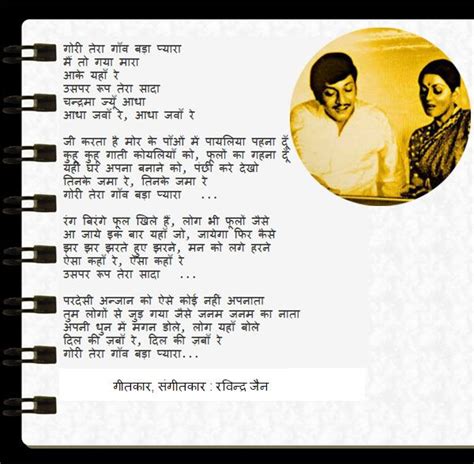 गोरी तेरा गाँव बडा प्यारा
मैं तो गया मारा
आके यहाँ रे
उसपर रूप तेरा सादा
चन्द्रमा ज्यूँ आधा
आधा जवाँ रे, आधा जवाँ रे
जी करता है मोर के पाँओं में पायलिया पहना दूँ
कुहू कुहू गाती कोयलियाँ को, फूलों का गहना दूँ
यही घर अपना बनाने को, पंछी करे देखो
तिनके जमा रे, तिनके जमा रे
गोरी तेरा गाँव बडा प्यारा ...
रंग बिरंगे फूल खिले हैं, लोग भी फूलों जैसे
आ जाये इक बार यहाँ जो, जायेगा फिर कैसे
झर झर झरते हुए झरने, मन को लगे हरने
ऐसा कहाँ रे, ऐसा कहाँ रे
उसपर रूप तेरा सादा ...
परदेसी अन्जान को ऐसे कोई नहीं अपनाता
तुम लोगों से जुड गया जैसे जनम जनम का नाता
अपनी धुन में मगन डोले, लोग यहाँ बोले
दिल की जबाँ रे, दिल की जबाँ रे
गोरी तेरा गाँव बडा प्यारा...
गीतकार, संगीतकार : रविन्द्र जैन